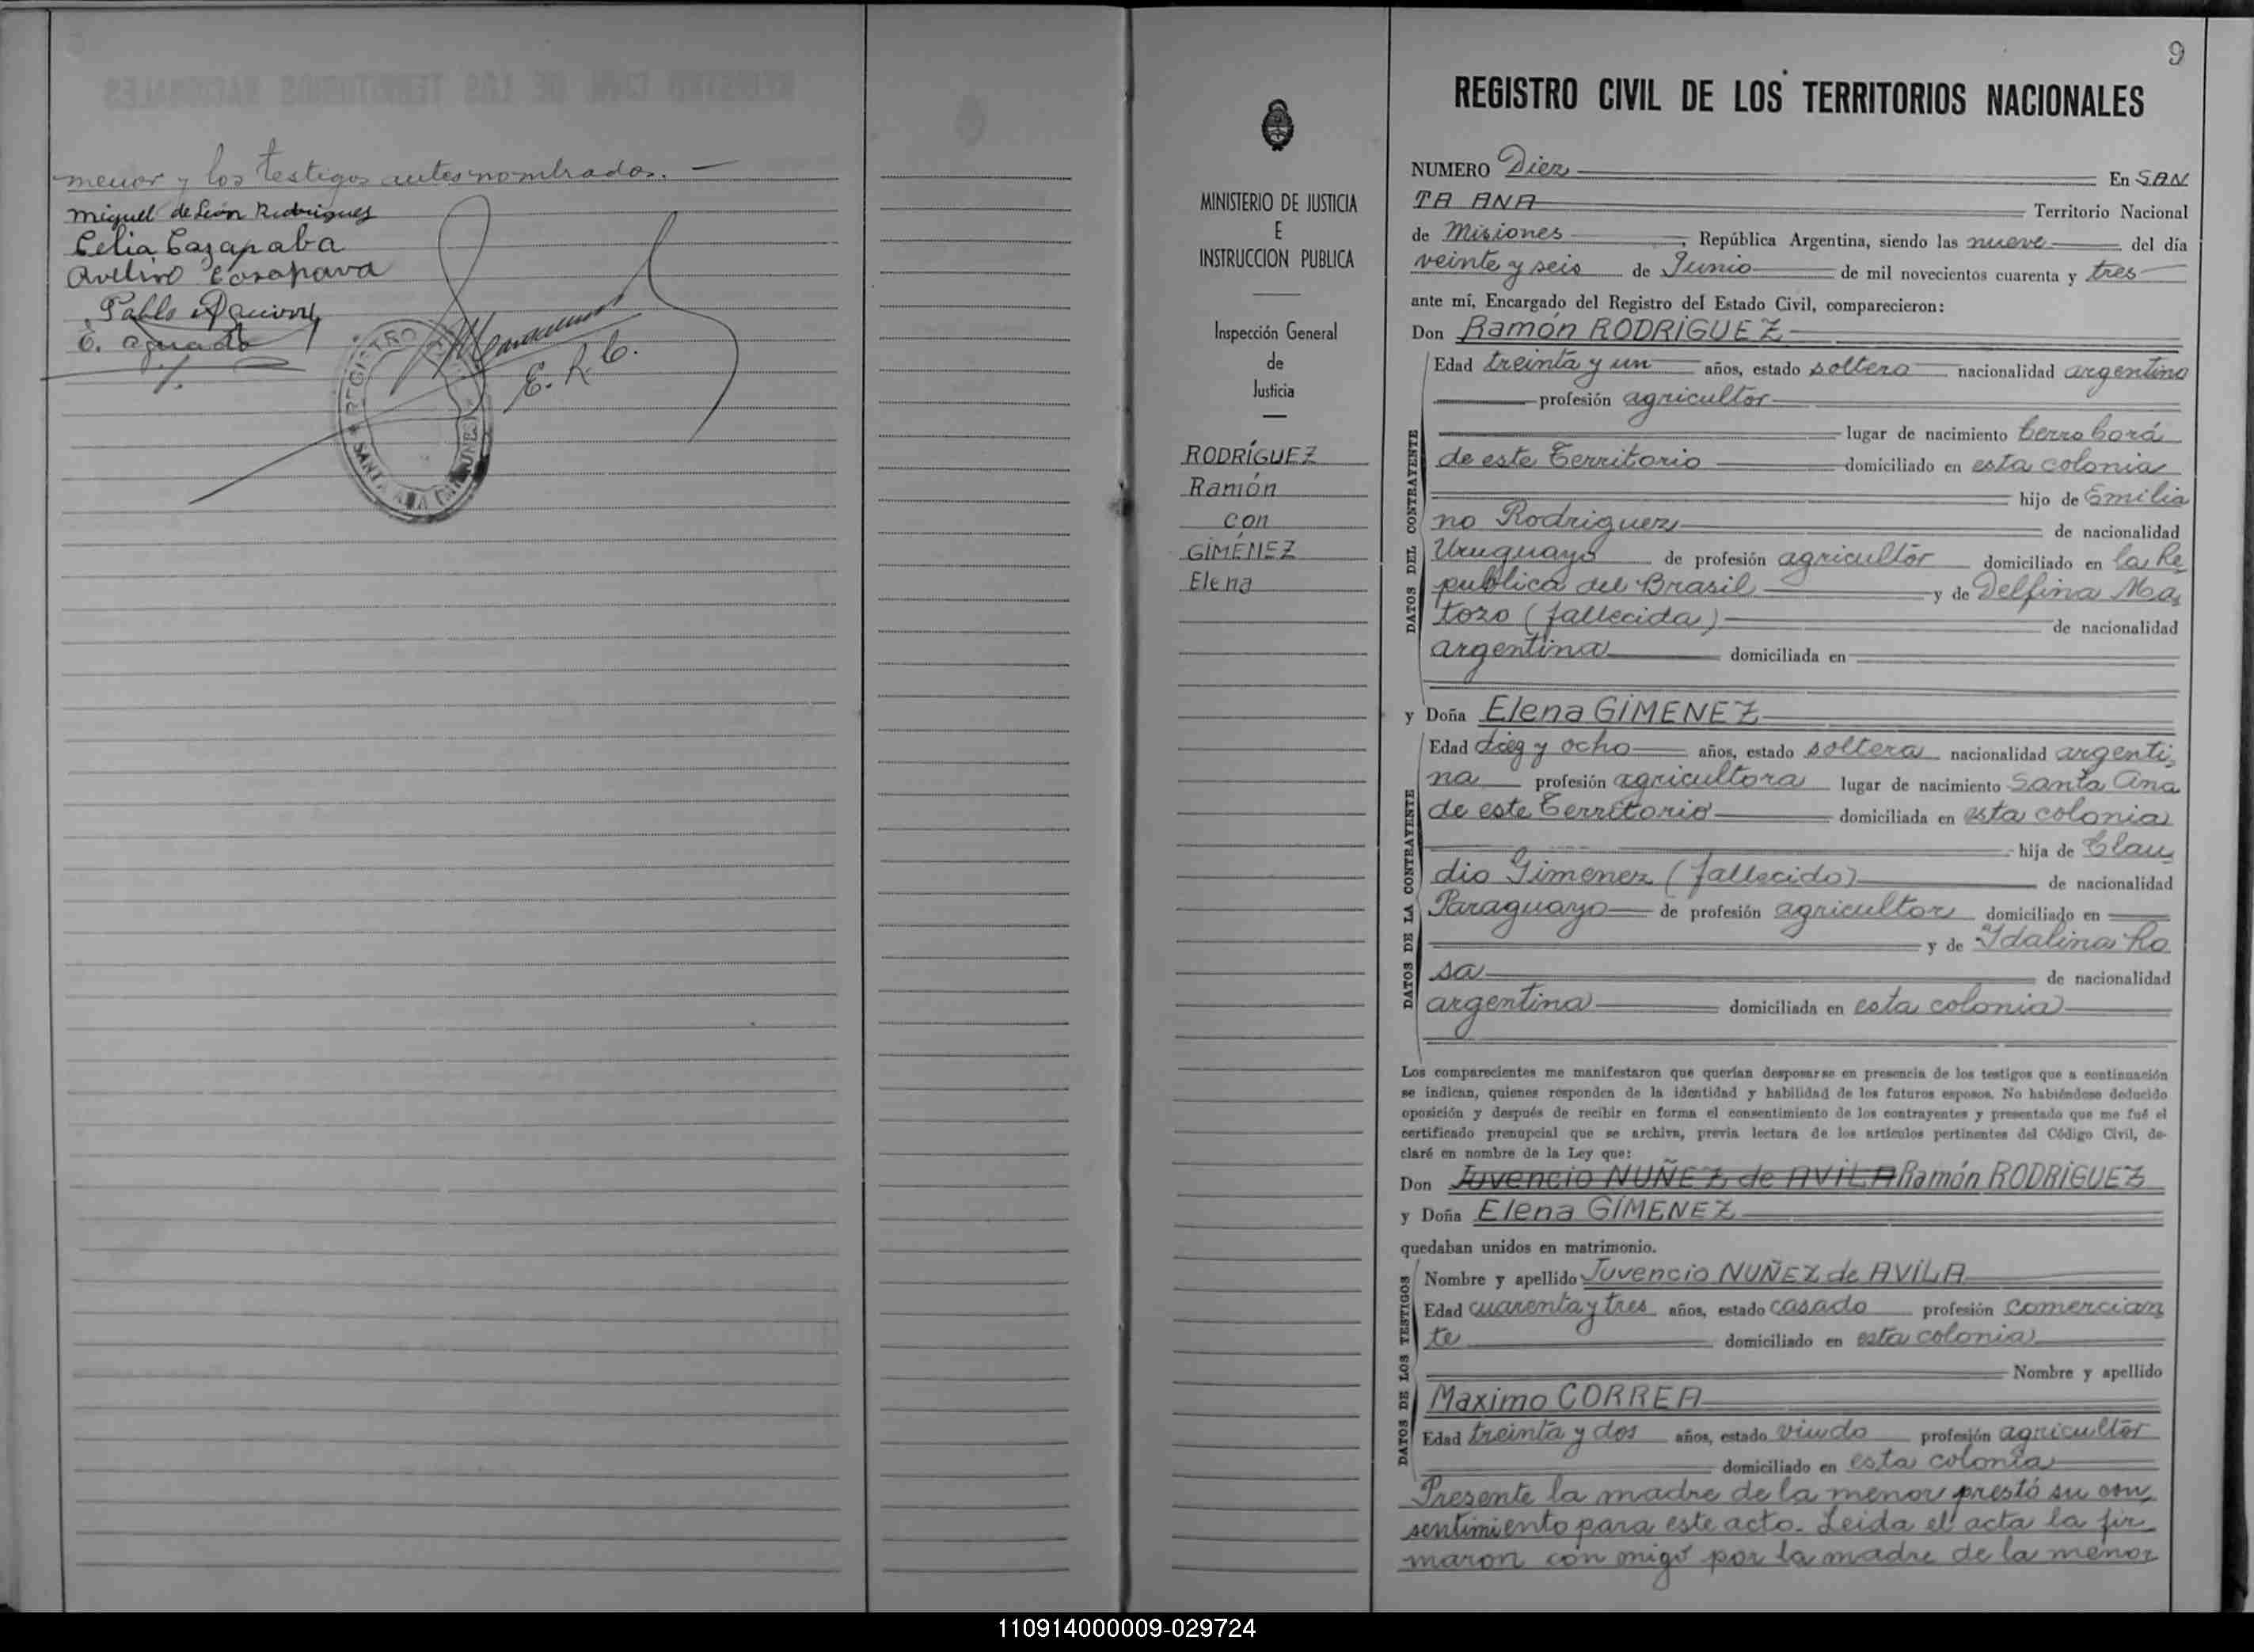 menor y los testigos antes nombrados. —
Miguel de León Rodrigues
Celia Cazapaba
Avelino Casapava
Pablo
E. Aguado
E. R. C.
REGISTRO
SANTA ANA
9
REGISTRO CIVIL DE LOS TERRITORIOS NACIONALES
MINISTERIO DE JUSTICIA
E
INSTRUCCION PUBLICA
Inspección General
de
Justicia
RODRÍGUEZ
Ramón
con
GIMÉNEZ
Elena
NUMERO Diez En SAN
TA ANA Territorio Nacional
de Misiones, República Argentina, siendo las nueve del día
veinte y seis de Junio de mil novecientos cuarenta y tres
ante mí, Encargado del Registro del Estado Civil, comparecieron:
Don Ramón RODRIGUEZ
DATOS DEL CONTRAYENTE
Edad treinta y un años, estado soltero nacionalidad argentino
profesión agricultor
lugar de nacimiento Cerro Corá
de este Territorio domiciliado en esta colonia
hijo de Emilia
no Rodriguez de nacionalidad
Uruguayo de profesión agricultor domiciliado en la Re
publica del Brasil y de Delfina Ma
tozo (fallecida) de nacionalidad
argentina domiciliada en
y Doña Elena GIMENEZ
DATOS DE LA CONTRAYENTE
Edad diez y ocho años, estado soltera nacionalidad argenti
na profesión agricultora lugar de nacimiento Santa Ana
de este Territorio domiciliada en esta colonia
hija de Clau
dio Gimenez (fallecido) de nacionalidad
Paraguayo de profesión agricultor domiciliado en
y de Idalina Ro
sa de nacionalidad
argentina domiciliada en esta colonia
Los comparecientes me manifestaron que querían desposarse en presencia de los testigos que a continuación
se indican, quienes responden de la identidad y habilidad de los futuros esposos. No habiéndose deducido
oposición y después de recibir en forma el consentimiento de los contrayentes y presentado que me fué el
certificado prenupcial que se archiva, previa lectura de los artículos pertinentes del Código Civil, de-
claré en nombre de la Ley que:
Don Juvencio NUÑEZ de AVILA Ramón RODRIGUEZ
y Doña Elena GIMENEZ
quedaban unidos en matrimonio.
DATOS DE LOS TESTIGOS
Nombre y apellido Juvencio NUÑEZ de AVILA
Edad cuarenta y tres años, estado casado profesión comercian
te domiciliado en esta colonia
Nombre y apellido
Maximo CORREA
Edad treinta y dos años, estado viudo profesión agricultor
domiciliado en esta colonia
Presente la madre de la menor prestó su con
sentimiento para este acto. Leida el acta la fir
maron con migo por la madre de la menor
110914000009-029724